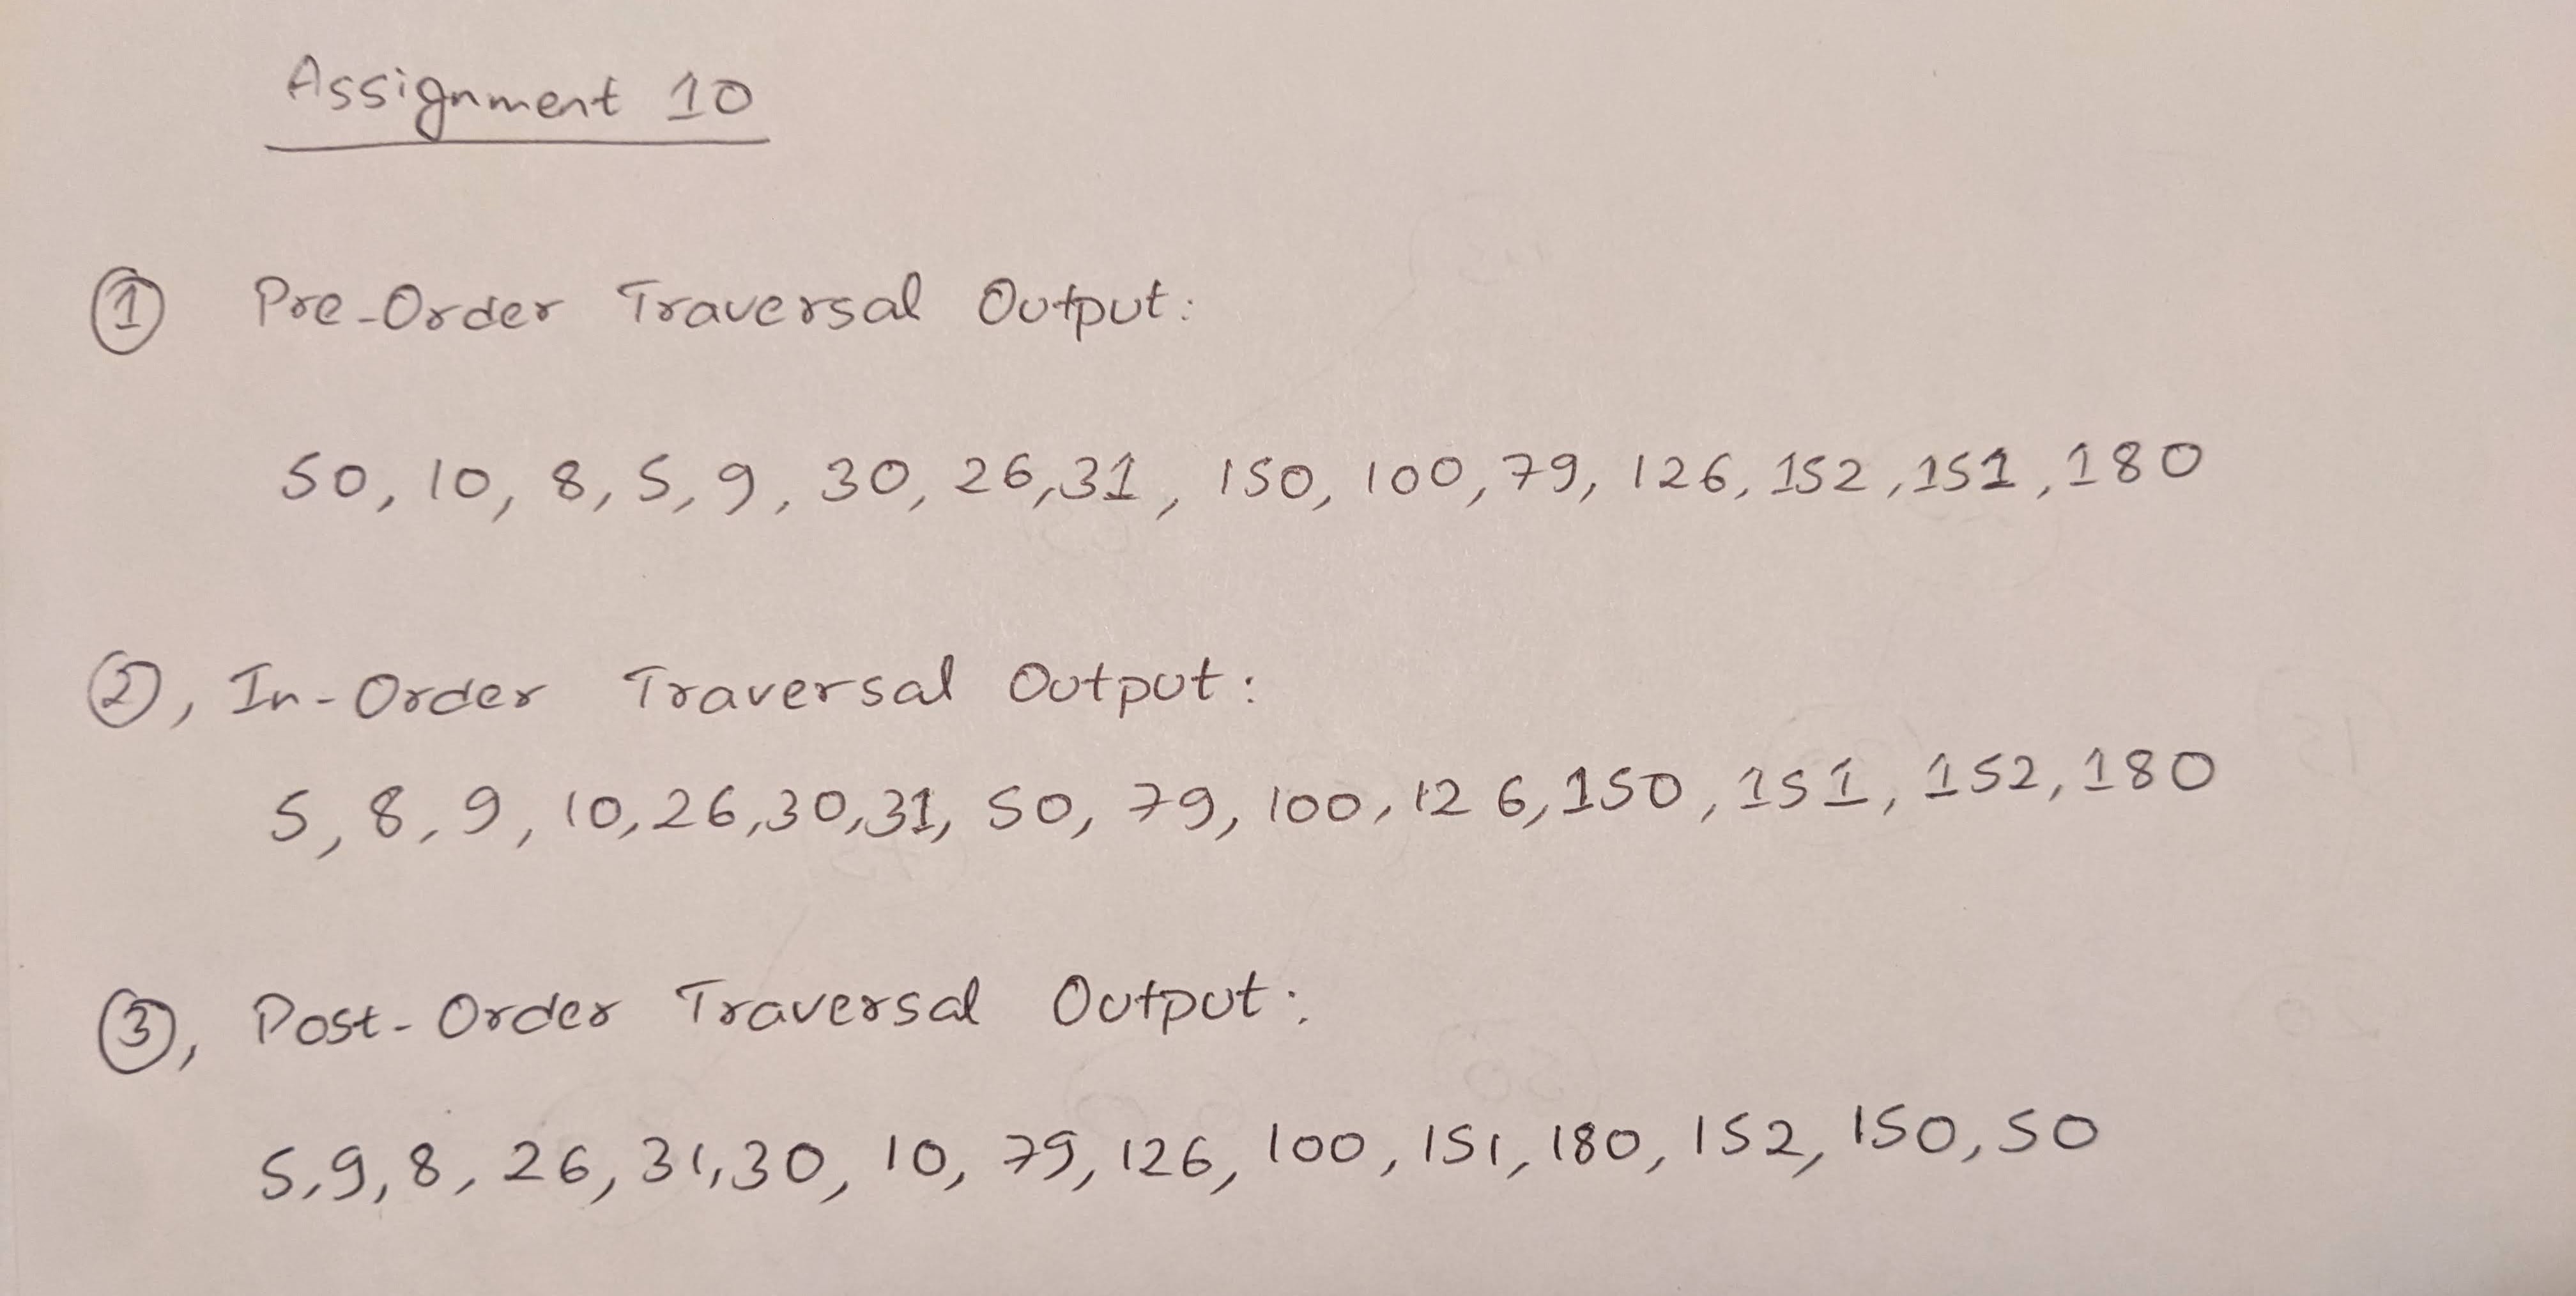 Assignment 10
① Pre-Order Traversal Output:
50, 10, 8, 5, 9, 30, 26, 31, 150, 100, 79, 126, 152, 151, 180
②, In-Order Traversal Output:
5, 8, 9, 10, 26, 30, 31, 50, 79, 100, 126, 150, 151, 152, 180
③, Post-Order Traversal Output:
5, 9, 8, 26, 31, 30, 10, 79, 126, 100, 151, 180, 152, 150, 50